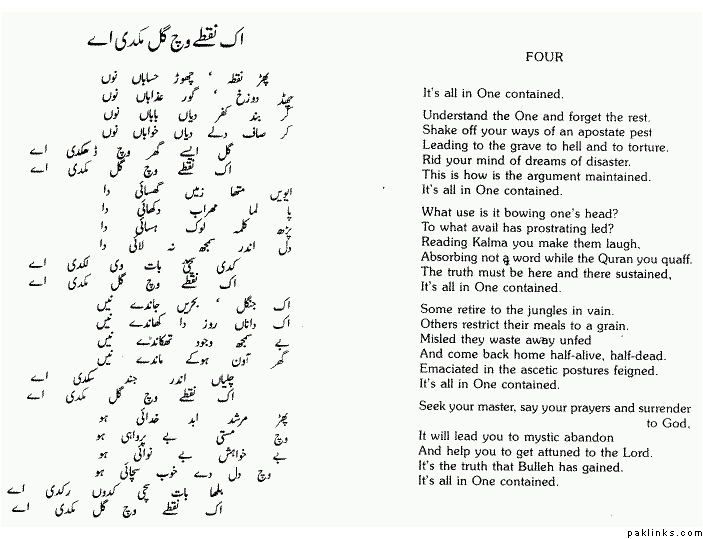 اک نقطے وچ گل مکدی اے
پھڑ نقطہ ، چھوڑ حساباں نوں
چھڈ دوزخ ، گور عذاباں نوں
کر بند کفر دیاں باباں نوں
کر صاف دلے دیاں خواباں نوں
گل ایسے گھر وچ ڈھکدی اے
اک نقطے وچ گل مکدی اے
ایویں متھا زمیں گھسائی دا
پا لما محراب دکھائی دا
پڑھ کلمہ لوک ہسائی دا
دل اندر سمجھ نہ لائی دا
کدی سچی بات وی لکدی اے
اک نقطے وچ گل مکدی اے
اک جنگل ، بحریں جاندے نیں
اک داناں روز دا کھاندے نیں
بے سمجھ وجود تھکاندے نیں
گھر آون ہوکے ماندے نیں
چلیاں اندر جند سکدی اے
اک نقطے وچ گل مکدی اے
پھڑ مرشد ابد خدائی ہو
وچ مستی بے پرواہی ہو
بے خواہش بے نوائی ہو
وچ دل دے خوب سچائی ہو
بلھا بات سچی کدوں رکدی اے
اک نقطے وچ گل مکدی اے
FOUR
It's all in One contained.
Understand the One and forget the rest.
Shake off your ways of an apostate pest
Leading to the grave to hell and to torture.
Rid your mind of dreams of disaster.
This is how is the argument maintained.
It's all in One contained.
What use is it bowing one's head?
To what avail has prostrating led?
Reading Kalma you make them laugh,
Absorbing not a word while the Quran you quaff.
The truth must be here and there sustained,
It's all in One contained.
Some retire to the jungles in vain.
Others restrict their meals to a grain.
Misled they waste away unfed
And come back home half-alive, half-dead.
Emaciated in the ascetic postures feigned.
It's all in One contained.
Seek your master, say your prayers and surrender
to God,
It will lead you to mystic abandon
And help you to get attuned to the Lord.
It's the truth that Bulleh has gained.
It's all in One contained.
paklinks.com